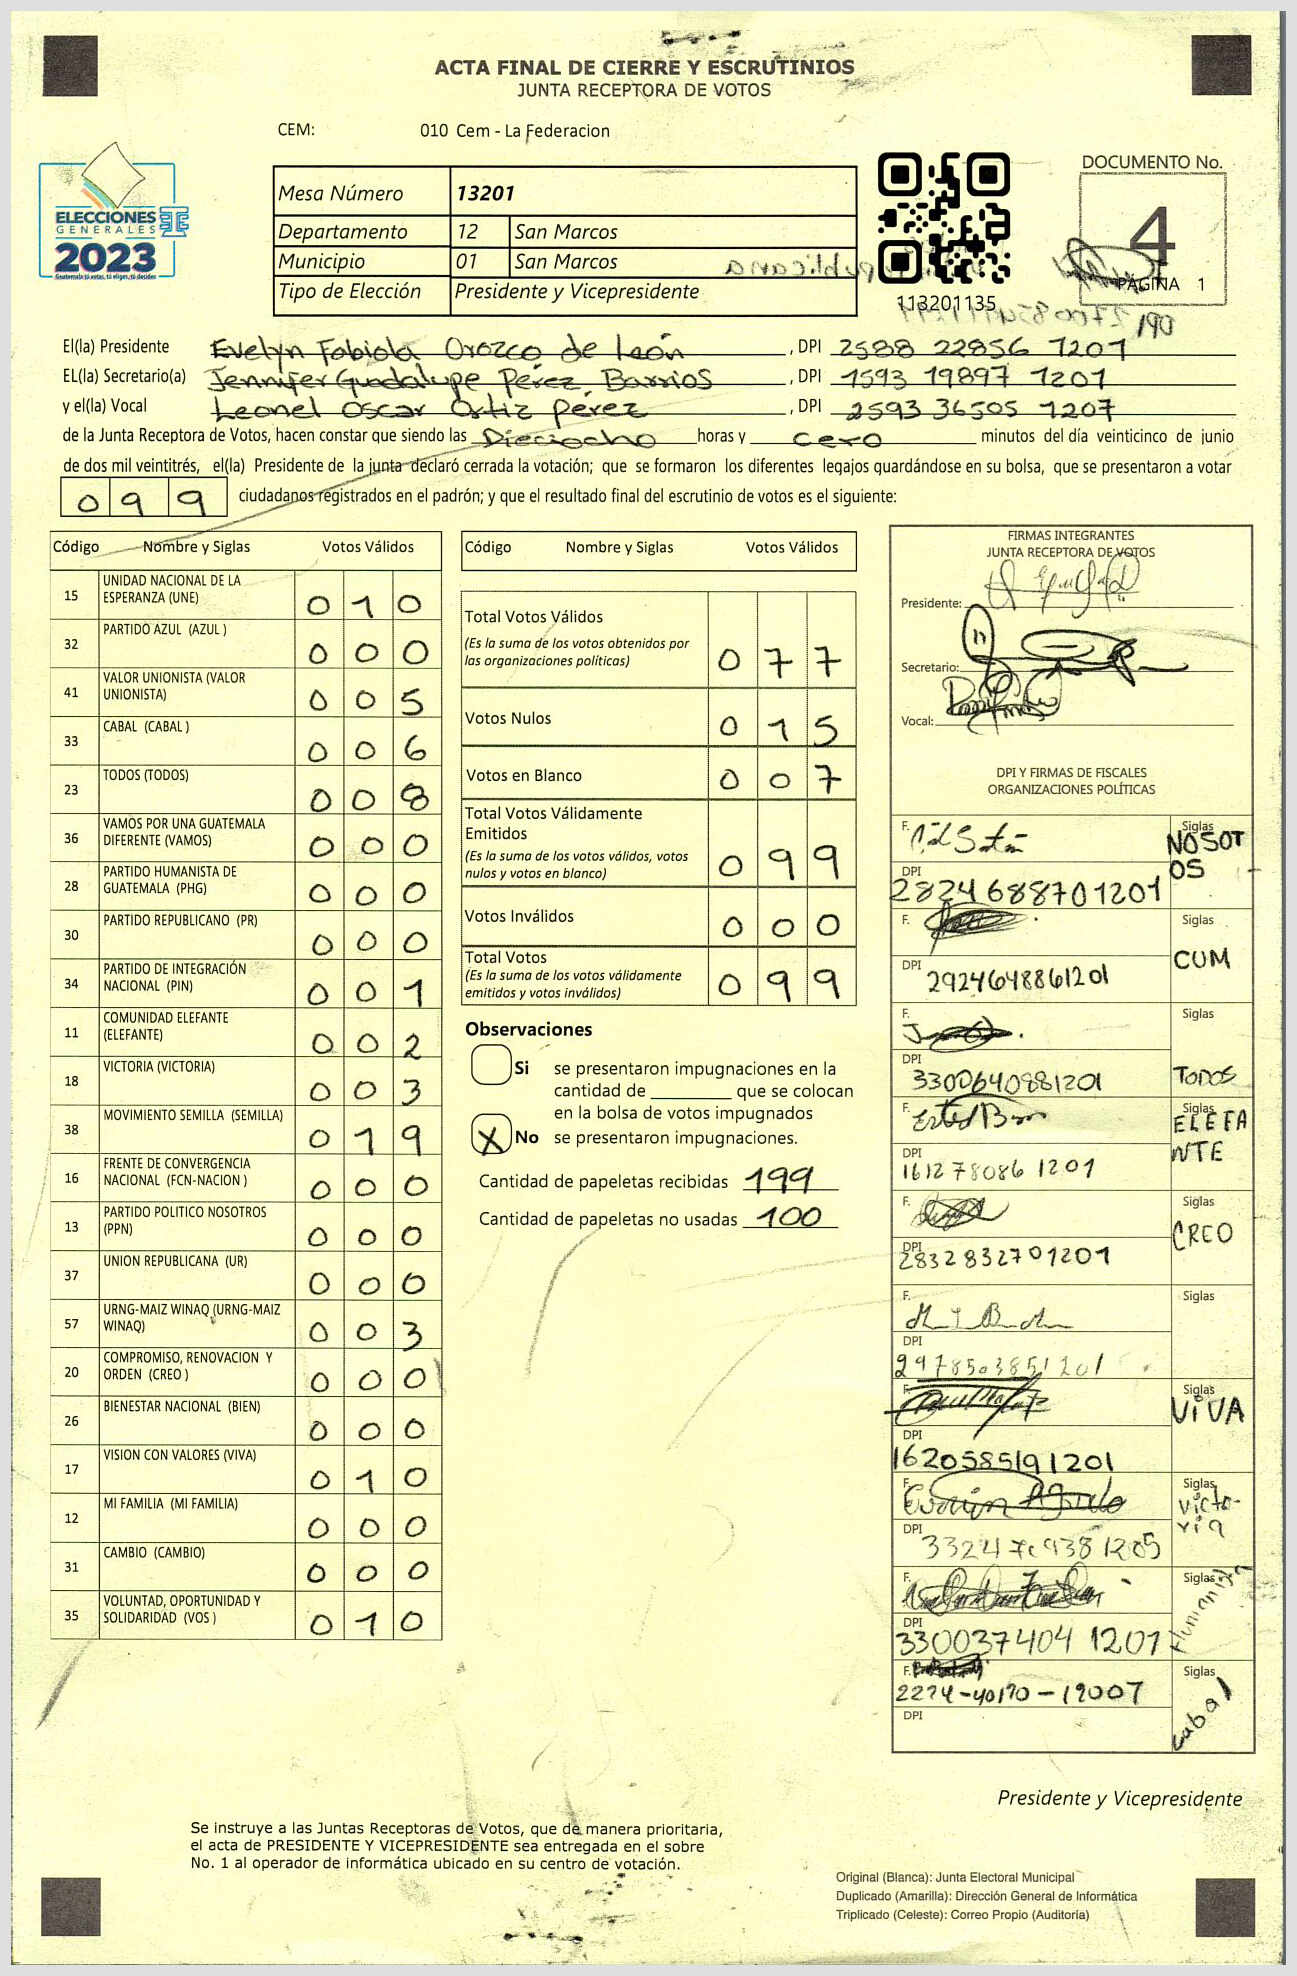 ACTA FINAL DE CIERRE Y ESCRUTINIOS
JUNTA RECEPTORA DE VOTOS
CEM: 010 Cem - La Federacion
ELECCIONES
GENERALES
2023
Guatemala tú votas, tú eliges, tú decides
Mesa Número 13201
Departamento 12 San Marcos
Municipio 01 San Marcos
Tipo de Elección Presidente y Vicepresidente
113201135
DOCUMENTO No.
4
PÁGINA 1
El(la) Presidente Evelyn Fabiola Orozco de León, DPI 2588 22856 1201
EL(la) Secretario(a) Jennifer Guadalupe Pérez Barrios, DPI 1593 19897 1201
y el(la) Vocal Leonel Oscar Ortiz Pérez, DPI 2593 36505 1207
de la Junta Receptora de Votos, hacen constar que siendo las Dieciocho horas y cero minutos del día veinticinco de junio
de dos mil veintitrés, el(la) Presidente de la junta declaró cerrada la votación; que se formaron los diferentes legajos guardándose en su bolsa, que se presentaron a votar
099 ciudadanos registrados en el padrón; y que el resultado final del escrutinio de votos es el siguiente:
Código Nombre y Siglas Votos Válidos
15 UNIDAD NACIONAL DE LA ESPERANZA (UNE) 010
32 PARTIDO AZUL (AZUL ) 000
41 VALOR UNIONISTA (VALOR UNIONISTA) 005
33 CABAL (CABAL ) 006
23 TODOS (TODOS) 008
36 VAMOS POR UNA GUATEMALA DIFERENTE (VAMOS) 000
28 PARTIDO HUMANISTA DE GUATEMALA (PHG) 000
30 PARTIDO REPUBLICANO (PR) 000
34 PARTIDO DE INTEGRACIÓN NACIONAL (PIN) 001
11 COMUNIDAD ELEFANTE (ELEFANTE) 002
18 VICTORIA (VICTORIA) 003
38 MOVIMIENTO SEMILLA (SEMILLA) 019
16 FRENTE DE CONVERGENCIA NACIONAL (FCN-NACION ) 000
13 PARTIDO POLITICO NOSOTROS (PPN) 000
37 UNION REPUBLICANA (UR) 000
57 URNG-MAIZ WINAQ (URNG-MAIZ WINAQ) 003
20 COMPROMISO, RENOVACION Y ORDEN (CREO ) 000
26 BIENESTAR NACIONAL (BIEN) 000
17 VISION CON VALORES (VIVA) 010
12 MI FAMILIA (MI FAMILIA) 000
31 CAMBIO (CAMBIO) 000
35 VOLUNTAD, OPORTUNIDAD Y SOLIDARIDAD (VOS ) 010
Código Nombre y Siglas Votos Válidos
Total Votos Válidos 077
(Es la suma de los votos obtenidos por las organizaciones políticas)
Votos Nulos 015
Votos en Blanco 007
Total Votos Válidamente Emitidos 099
(Es la suma de los votos válidos, votos nulos y votos en blanco)
Votos Inválidos 000
Total Votos 099
(Es la suma de los votos válidamente emitidos y votos inválidos)
Observaciones
Si se presentaron impugnaciones en la
cantidad de ________ que se colocan
en la bolsa de votos impugnados
X No se presentaron impugnaciones.
Cantidad de papeletas recibidas 199
Cantidad de papeletas no usadas 100
FIRMAS INTEGRANTES
JUNTA RECEPTORA DE VOTOS
Presidente:
Secretario:
Vocal:
DPI Y FIRMAS DE FISCALES
ORGANIZACIONES POLÍTICAS
F. Siglas NOSOTOS
DPI 2824688701201
F. Siglas CUM
DPI 2924648861201
F. Siglas TODOS
DPI 3300640881201
F. Siglas ELEFANTE
DPI 161278086 1201
F. Siglas CREO
DPI 2832832701201
F. Siglas
DPI 2978503851201
F. Siglas VIVA
DPI 1620585191201
F. Siglas Victoria
DPI
F. Siglas
DPI 330037404 1201
F. Siglas cabal
2274-40170-12007
DPI
Presidente y Vicepresidente
Se instruye a las Juntas Receptoras de Votos, que de manera prioritaria,
el acta de PRESIDENTE Y VICEPRESIDENTE sea entregada en el sobre
No. 1 al operador de informática ubicado en su centro de votación.
Original (Blanca): Junta Electoral Municipal
Duplicado (Amarilla): Dirección General de Informática
Triplicado (Celeste): Correo Propio (Auditoría)